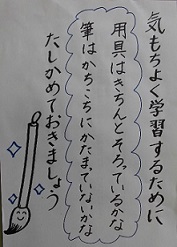 気もちよく学習するために
用具はきちんとそろっているかな
筆はかちこちにかたまっていないかな
たしかめておきましょう